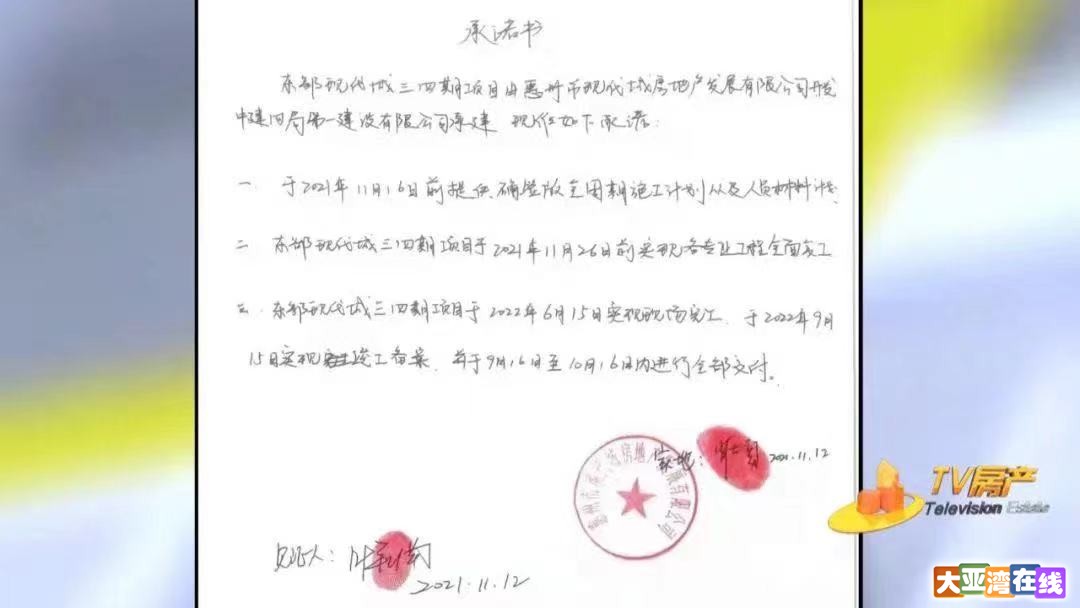 承诺书
东部现代城三四期项目由惠州市现代城房地产发展有限公司开发
中建四局第一建设有限公司承建 现作如下承诺:
一. 于2021年11月16日前提供确签版全周期施工计划以及人员材料计划
二. 东部现代城三四期项目于2021年11月26日前实现各专业工程全面复工
三. 东部现代城三四期项目于2022年6月15日实现现场完工, 于2022年9月
15日实现竣工备案, 并于9月16日至10月16日内进行全部交付。
惠州市现代城房地产发展有限公司
2021.11.12
见证人:
2021.11.12
TV房产
Television Estate
大亚湾在线